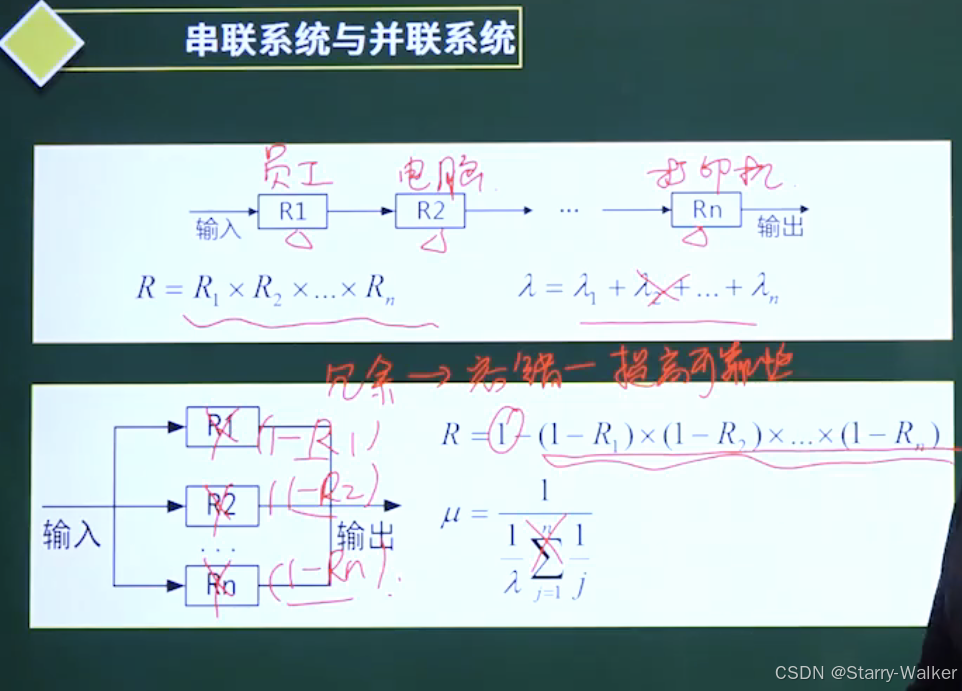 串联系统与并联系统
员工 电脑 打印机
输入 R1 R2 ... Rn 输出
R = R₁ × R₂ × ... × Rₙ λ = λ₁ + λ₂ + ... + λₙ
冗余 → 容错 — 提高可靠性
R1 (1-R1)
R = 1 - (1 - R₁) × (1 - R₂) × ... × (1 - Rₙ)
R2 (1-R2)
输入 ... 输出
Rn (1-Rn).
μ = 1 / (1/λ ∑ⁿⱼ₌₁ 1/j)
CSDN @Starry-Walker